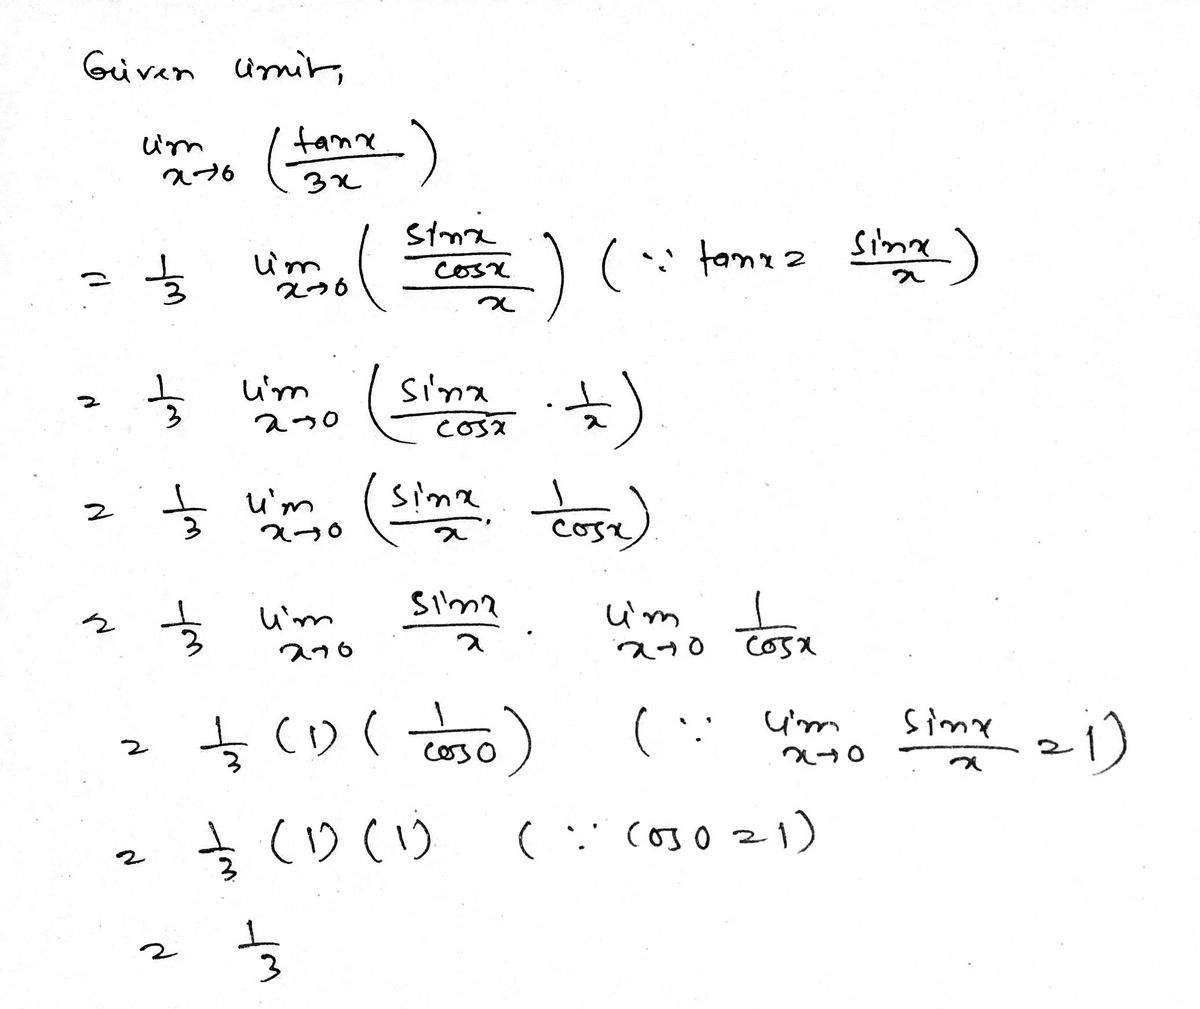 Given limit,
lim x→0 (tanx / 3x)
= 1/3 lim x→0 ((sinx / cosx) / x) (∵ tanx = sinx / x)
= 1/3 lim x→0 (sinx / cosx · 1/x)
= 1/3 lim x→0 (sinx / x · 1/cosx)
= 1/3 lim x→0 sinx / x · lim x→0 1/cosx
= 1/3 (1) (1/cos0) (∵ lim x→0 sinx / x = 1)
= 1/3 (1) (1) (∵ cos0 = 1)
= 1/3